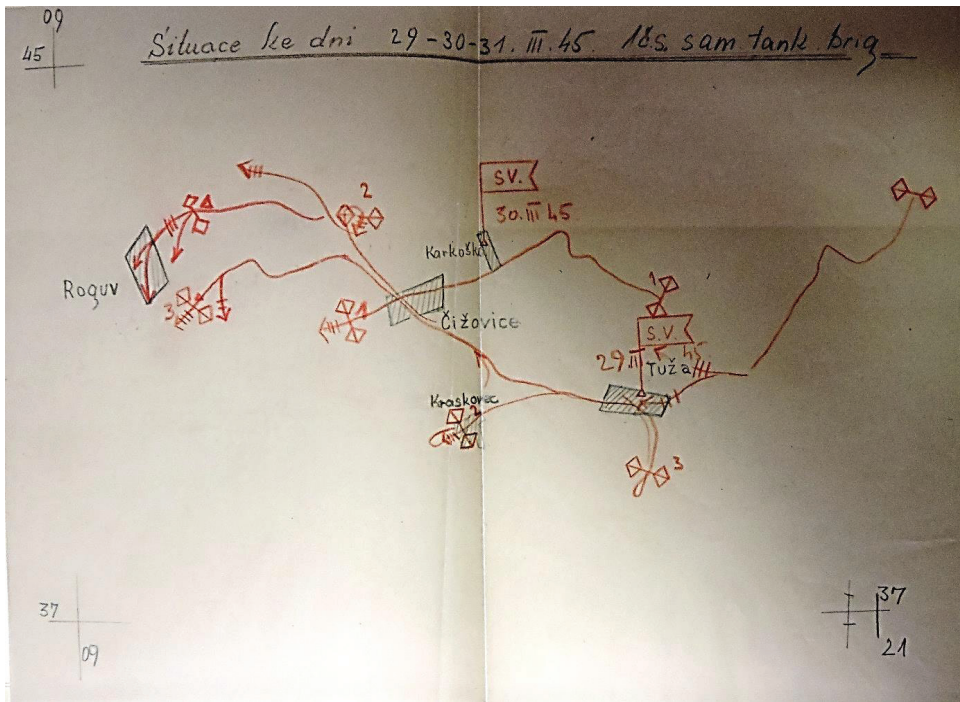 09
45
Situace ke dni 29-30-31. III. 45. 1čs. sam. tank. brig.
SV.
30. III 45
2
Karkoška
Roguv
3
1
Čižovice
1
S.V.
29 III 45
Tuža
Kraskovec
2
3
37
09
37
21